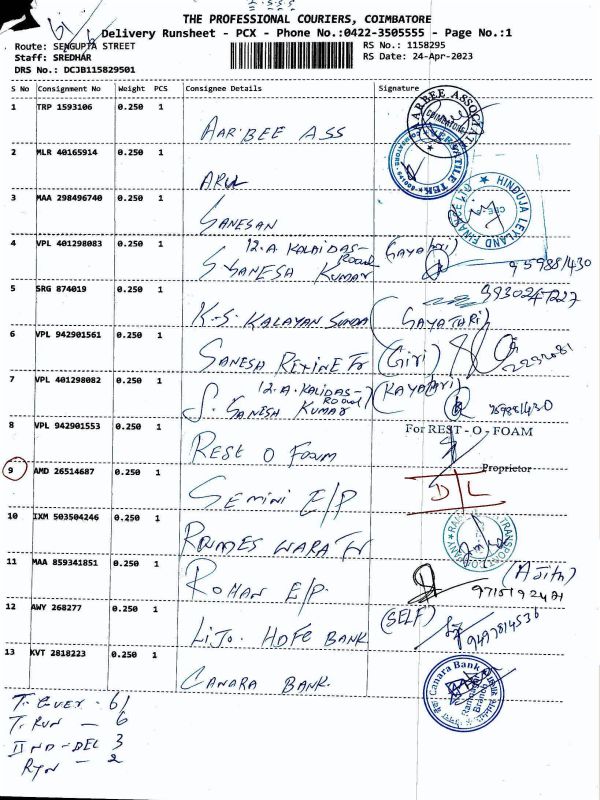 THE PROFESSIONAL COURIERS, COIMBATORE
Delivery Runsheet - PCX - Phone No.:0422-3505555 - Page No.:1
Route: SENGUPTA STREET
RS No.: 1158295
Staff: SREDHAR
RS Date: 24-Apr-2023
DRS No.: DCJB115829501
S No Consignment No Weight PCS Consignee Details Signature
1 TRP 1593106 0.250 1
AARBEE ASS
2 MLR 40165914 0.250 1
ARUL
3 MAA 298496740 0.250 1
GANESAN
HINDUJA LEYLAND
4 VPL 401298083 0.250 1
12.A KALAIDAS- ROAD
S GANESA KUMAR
(GAYATHRI)
959881430
5 SRG 874019 0.250 1
K.S. KALAYAN
(GAYATHRI)
6 VPL 942901561 0.250 1
GANESH REXINE
(Giri)
7 VPL 401298082 0.250 1
12.A. KALIDAS- ROAD
S. GANESH KUMAR
8 VPL 942901553 0.250 1
REST O FOAM
For REST - O - FOAM
Proprietor
9 AMD 26514687 0.250 1
GEMINI E/P
D/L
10 IXM 503504246 0.250 1
TRANSPORT COMPANY
11 MAA 859341851 0.250 1
ROHAN E/P.
(AJith)
12 AWY 268277 0.250 1
LIJO. HDFC BANK
(SELF)
9497814536
13 KVT 2818223 0.250 1
CANARA BANK.
Canara Bank
Branch
T. COVER - 61
T. RUN - 6
II ND - DEL 3
RTN - 2